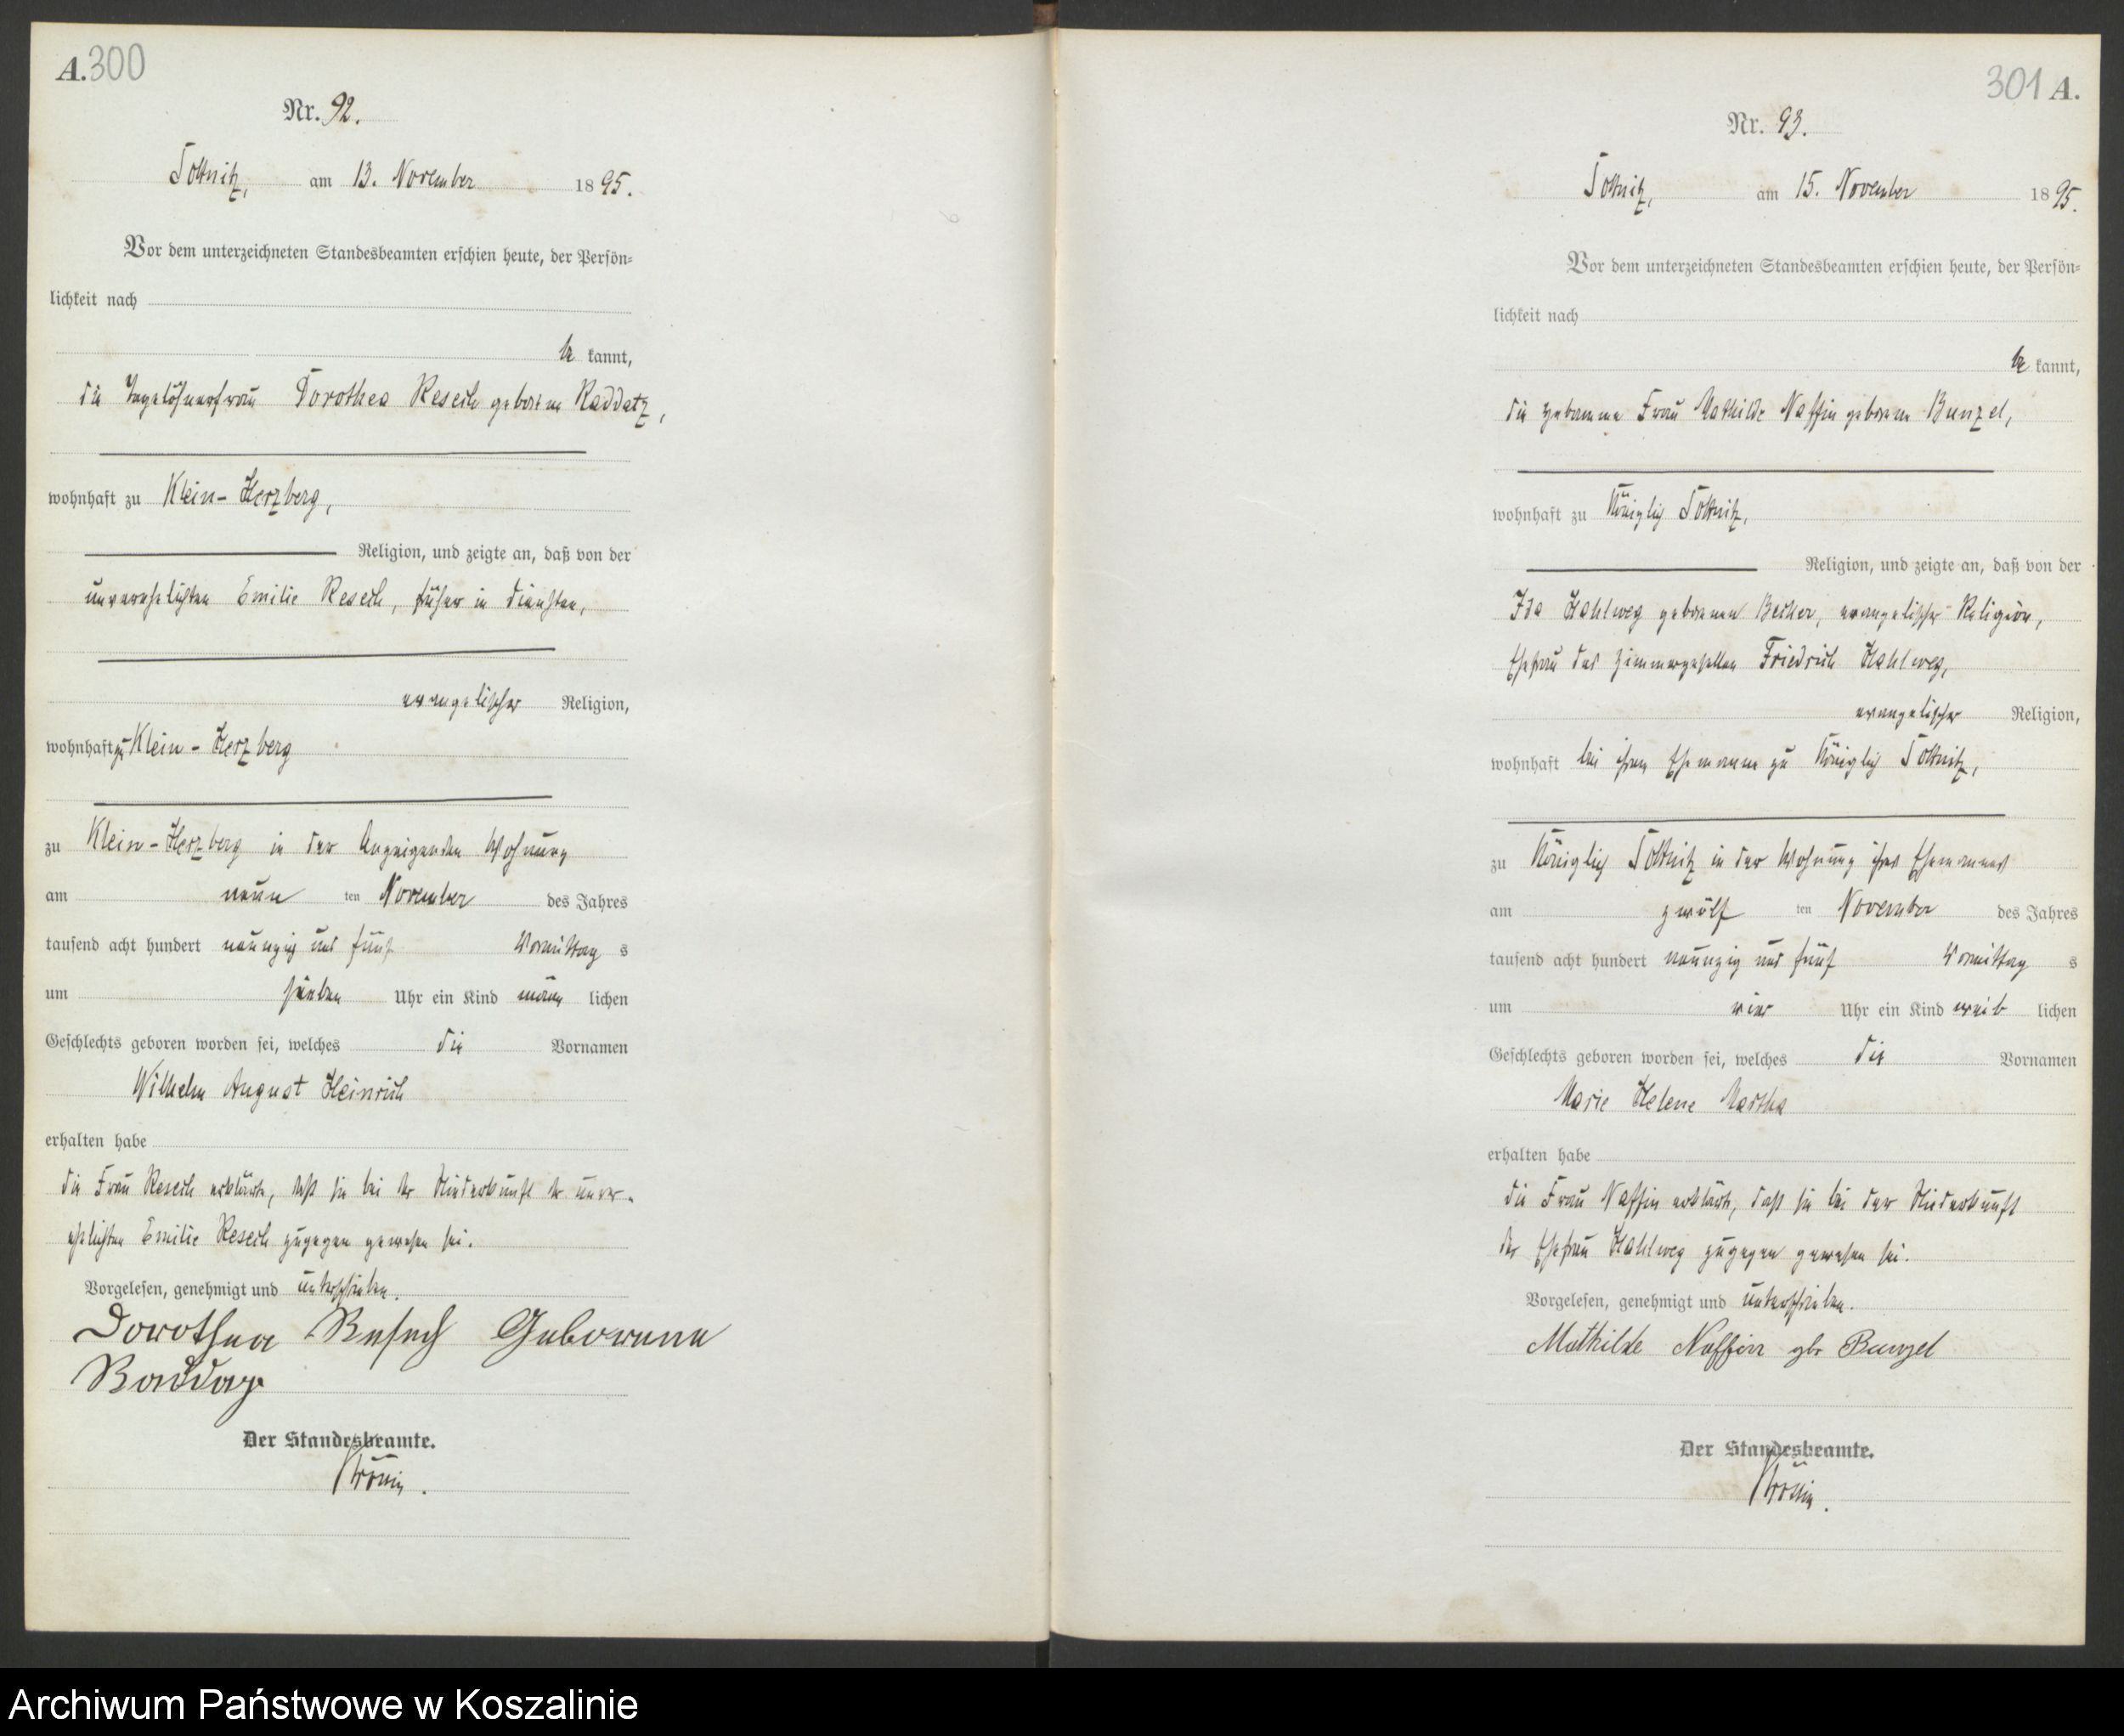 A. 300
Nr. 92.
Sottnitz, am 13. November 1895.
Vor dem unterzeichneten Standesbeamten erschien heute, der Persön-
lichkeit nach
be kannt,
die Tagelöhnerfrau Dorothea Resech geborene Raddatz,
wohnhaft zu Klein-Herzberg,
Religion, und zeigte an, daß von der
unverehelichten Emilie Resech, früher in Diensten,
evangelischer Religion,
wohnhaft zu Klein-Herzberg
zu Klein-Herzberg in der Anzeigenden Wohnung
am neun ten November des Jahres
tausend acht hundert neunzig und fünf Vormittag s
um sieben Uhr ein Kind männ lichen
Geschlechts geboren worden sei, welches die Vornamen
Wilhelm August Heinrich
erhalten habe
die Frau Resech erklärte, daß sie bei der Niederkunft der unver-
ehelichten Emilie Resech zugegen gewesen sei.
Vorgelesen, genehmigt und unterschrieben.
Dorothea Resech Geborene
Raddaz
Der Standesbeamte.
301 A.
Nr. 93.
Sottnitz, am 15. November 1895.
Vor dem unterzeichneten Standesbeamten erschien heute, der Persön-
lichkeit nach
be kannt,
die Hebamme Frau Mathilde Naffin geborene Bunzel,
wohnhaft zu Königlich Sottnitz,
Religion, und zeigte an, daß von der
Ida Hahlweg geborenen Becker, evangelischer Religion,
Ehefrau des Zimmergesellen Friedrich Hahlweg,
evangelischer Religion,
wohnhaft bei ihrem Ehemanne zu Königlich Sottnitz,
zu Königlich Sottnitz in der Wohnung ihres Ehemannes
am zwölf ten November des Jahres
tausend acht hundert neunzig und fünf Vormittag s
um vier Uhr ein Kind weib lichen
Geschlechts geboren worden sei, welches die Vornamen
Marie Helene Martha
erhalten habe
die Frau Naffin erklärte, daß sie bei der Niederkunft
der Ehefrau Hahlweg zugegen gewesen sei.
Vorgelesen, genehmigt und unterschrieben.
Mathilde Naffin gbr Bunzel
Der Standesbeamte.
Archiwum Państwowe w Koszalinie